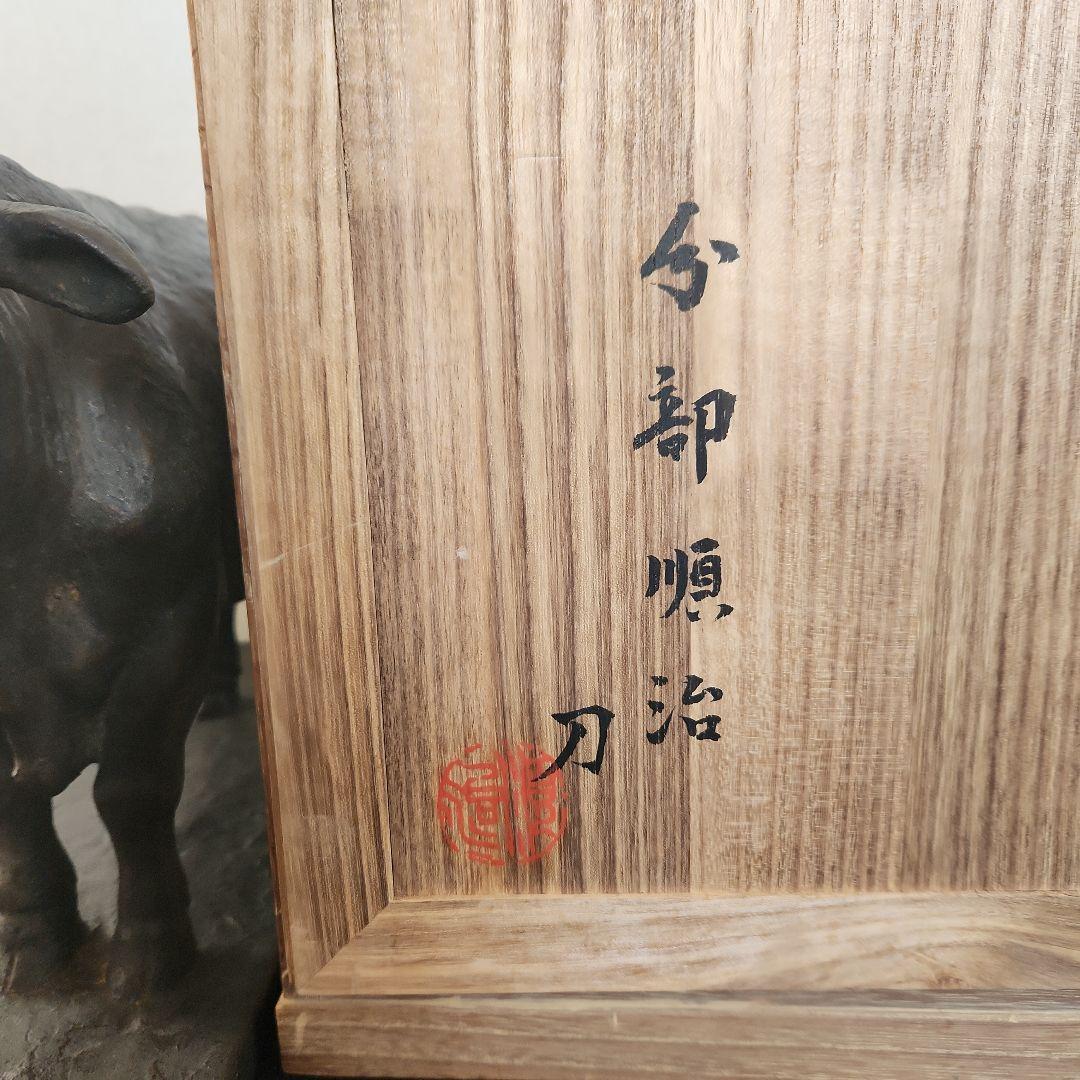 分部順治
刀